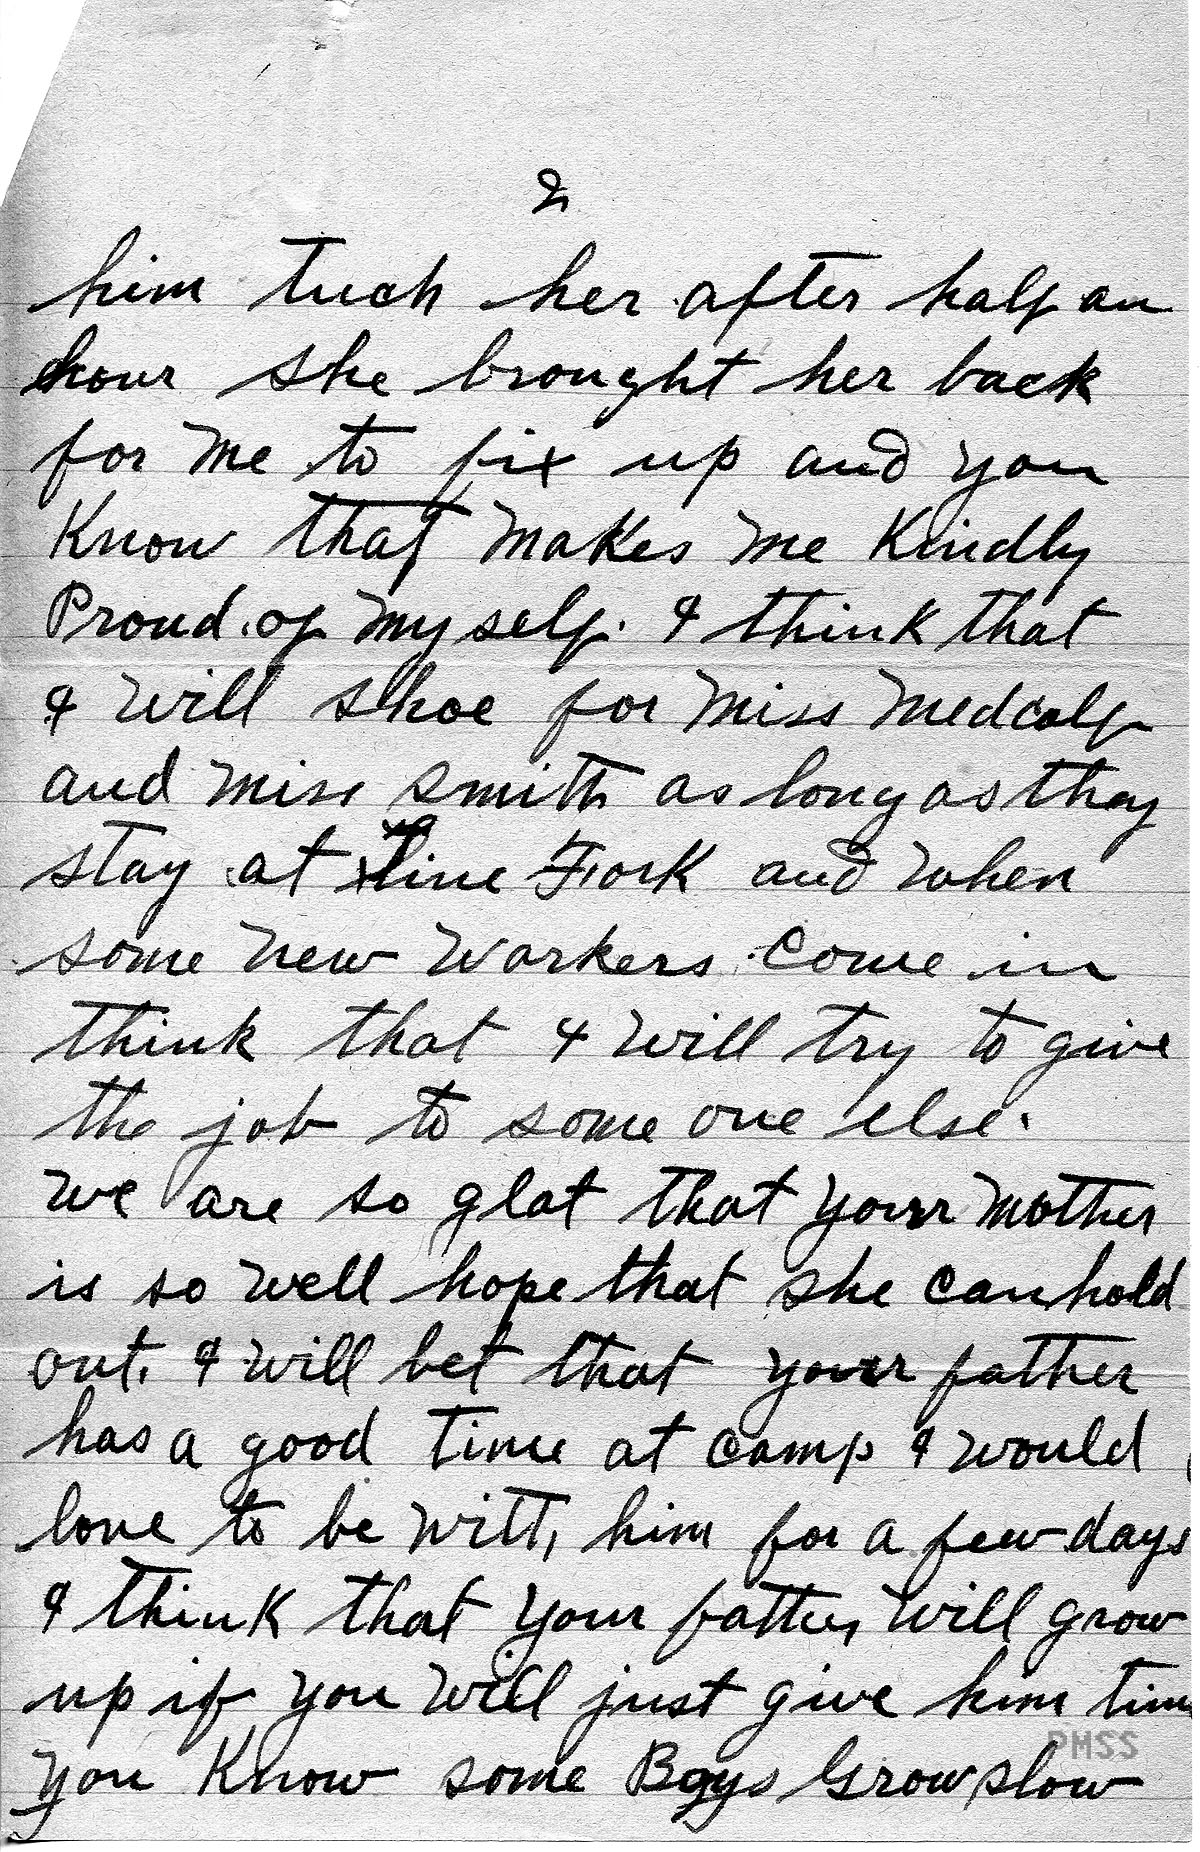 2
him tuch her after half an
hour she brought her back
for me to fix up and you
Know that makes me Kindly
Proud. of my self. I think that
I will shoe for Miss Medcalf
and Miss Smith as long as they
stay at Line Fork and when
some new workers come in
think that I will try to give
the job to some one else.
we are so glat that your Mother
is so well hope that she can hold
out. I will bet that your father
has a good time at camp I would
love to be with him for a few days
I think that your father will grow
up if you will just give him time
you Know some Boys Grow slow
PMSS